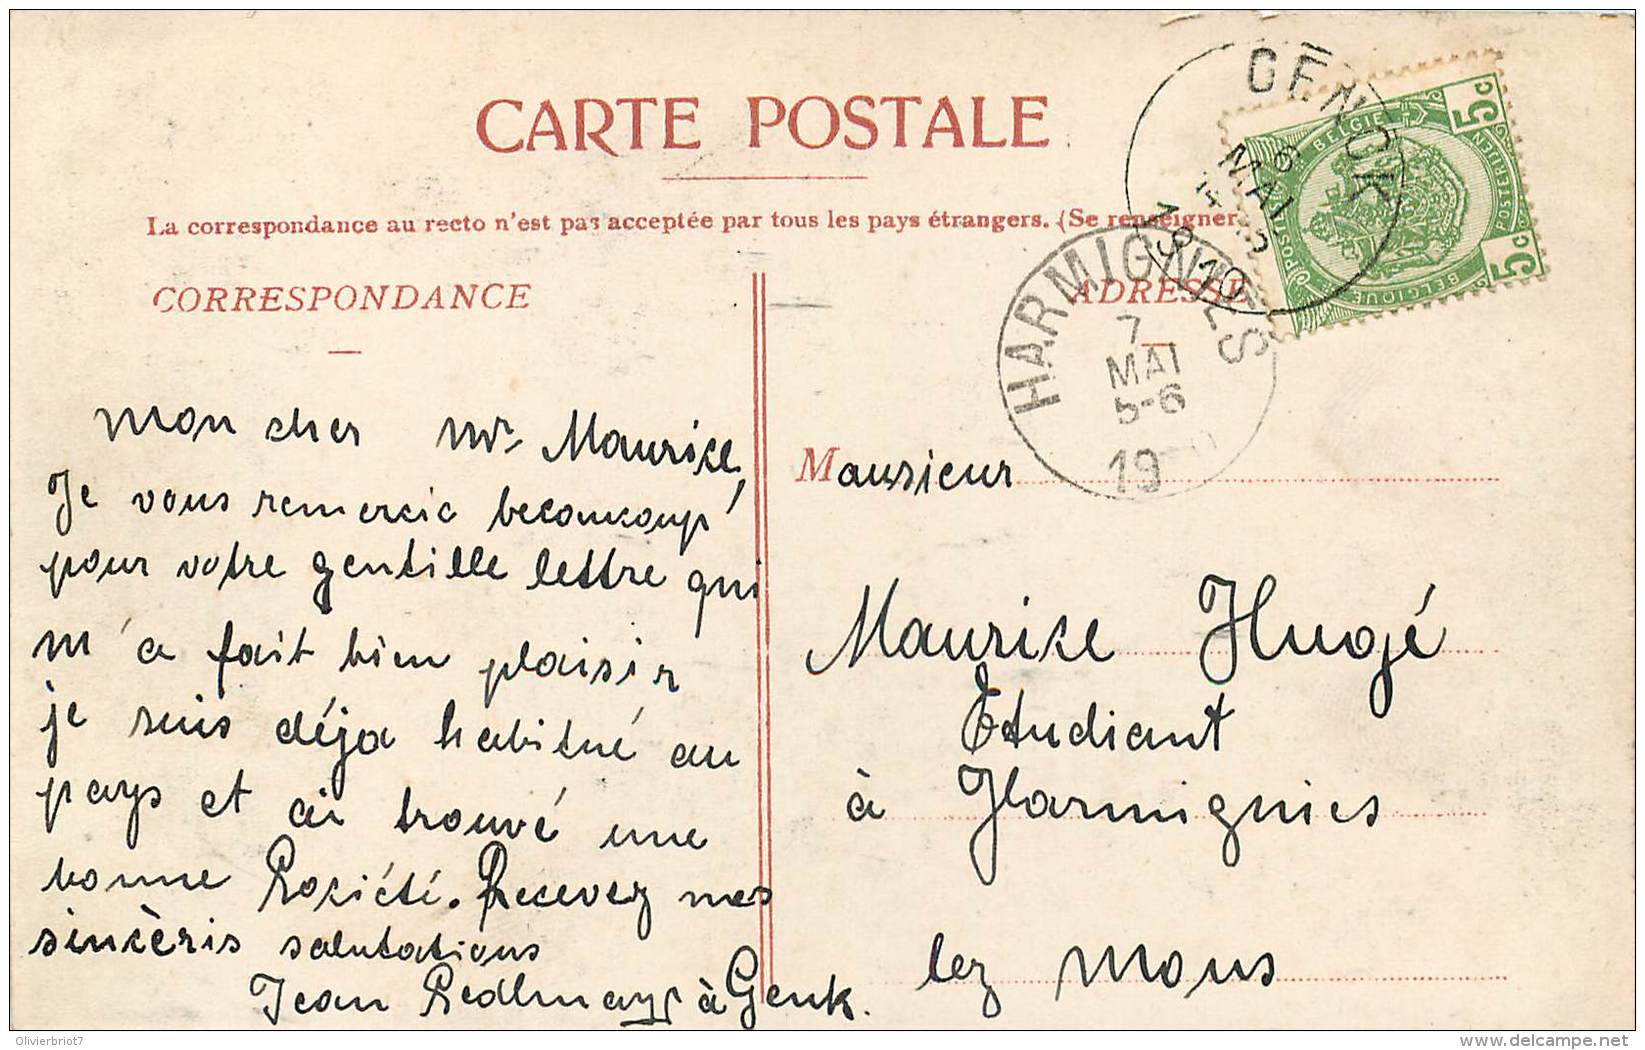 CARTE POSTALE
La correspondance au recto n'est pas acceptée par tous les pays étrangers. (Se renseigner
CORRESPONDANCE
ADRESSE
GENCK
6 MAI
1910
BELGIE
BELGIQUE
POSTERIJEN
POSTES
5c
5c
HARMIGNIES
7
MAI
5-6
19
mon cher Mr Maurice,
Je vous remercie beaucoup
pour votre gentille lettre qui
m'a fait bien plaisir
je suis déja habitué au
pays et ai trouvé une
bonne Société. Recevez mes
sincèris salutations
Jean Redlmayr à Genk.
Monsieur
Maurice Hugé
Etudiant
à Harmignies
lez Mons
Olivierbriot7
delcampe.net